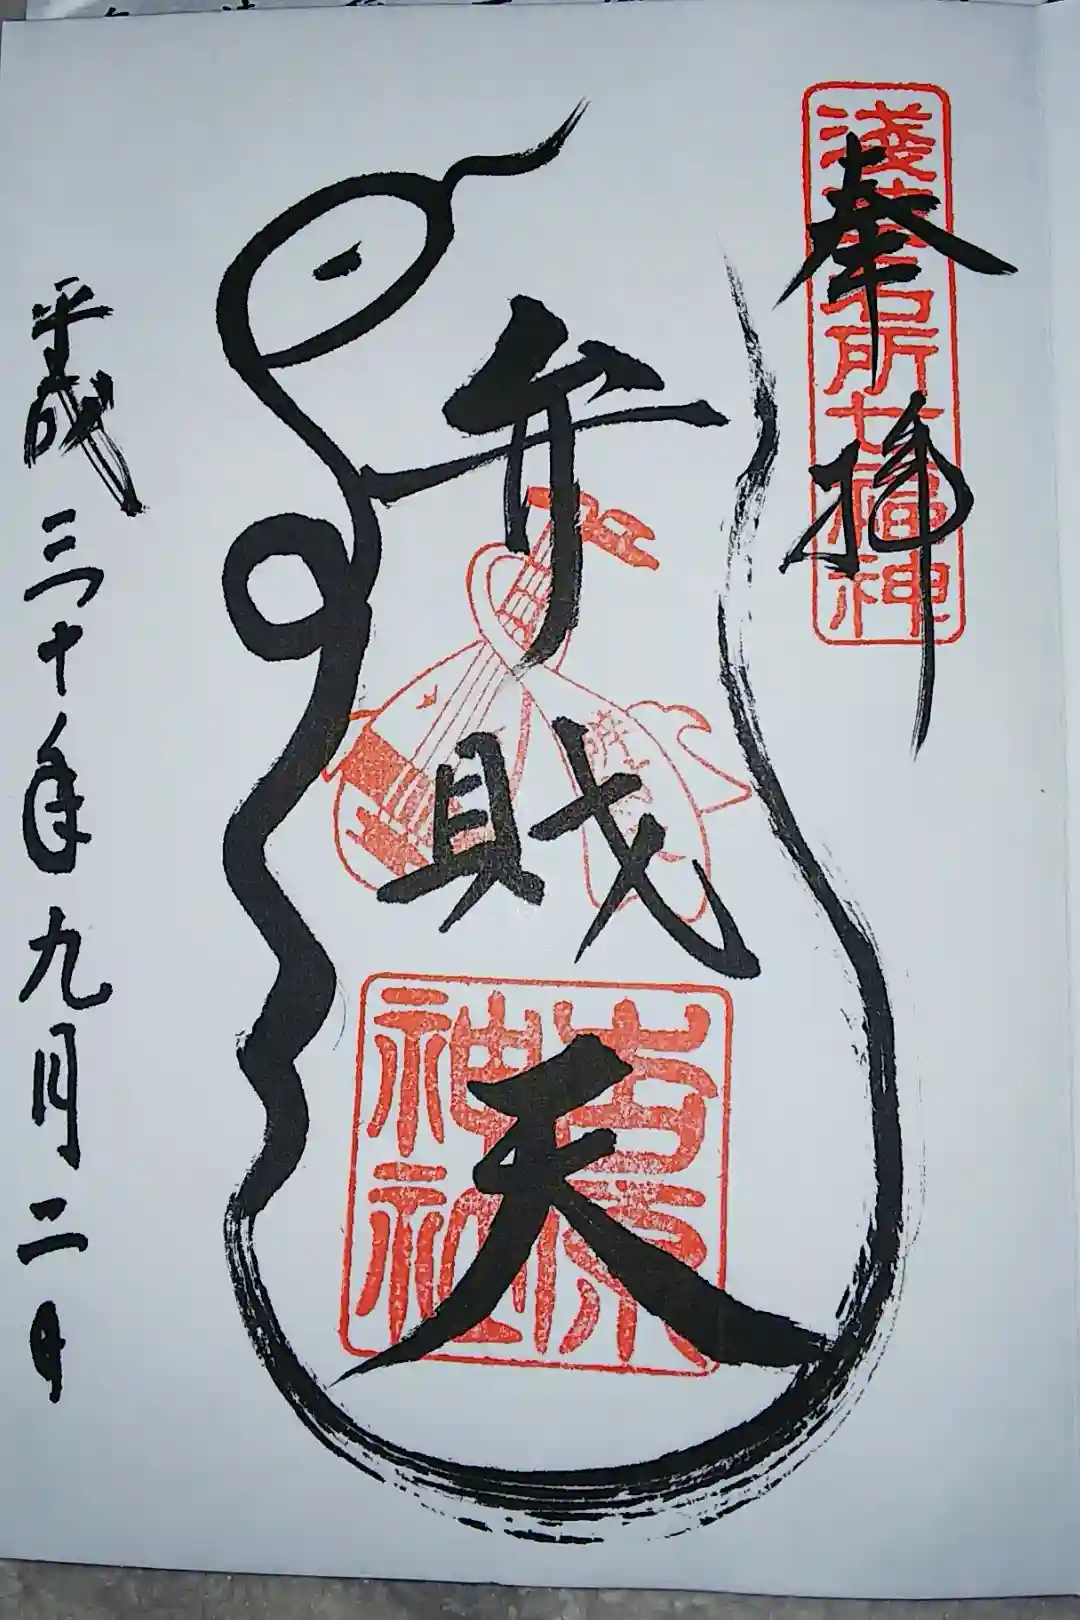 奉拝
淺草名所七福神
弁財天
吉原神社
平成三十年九月二日